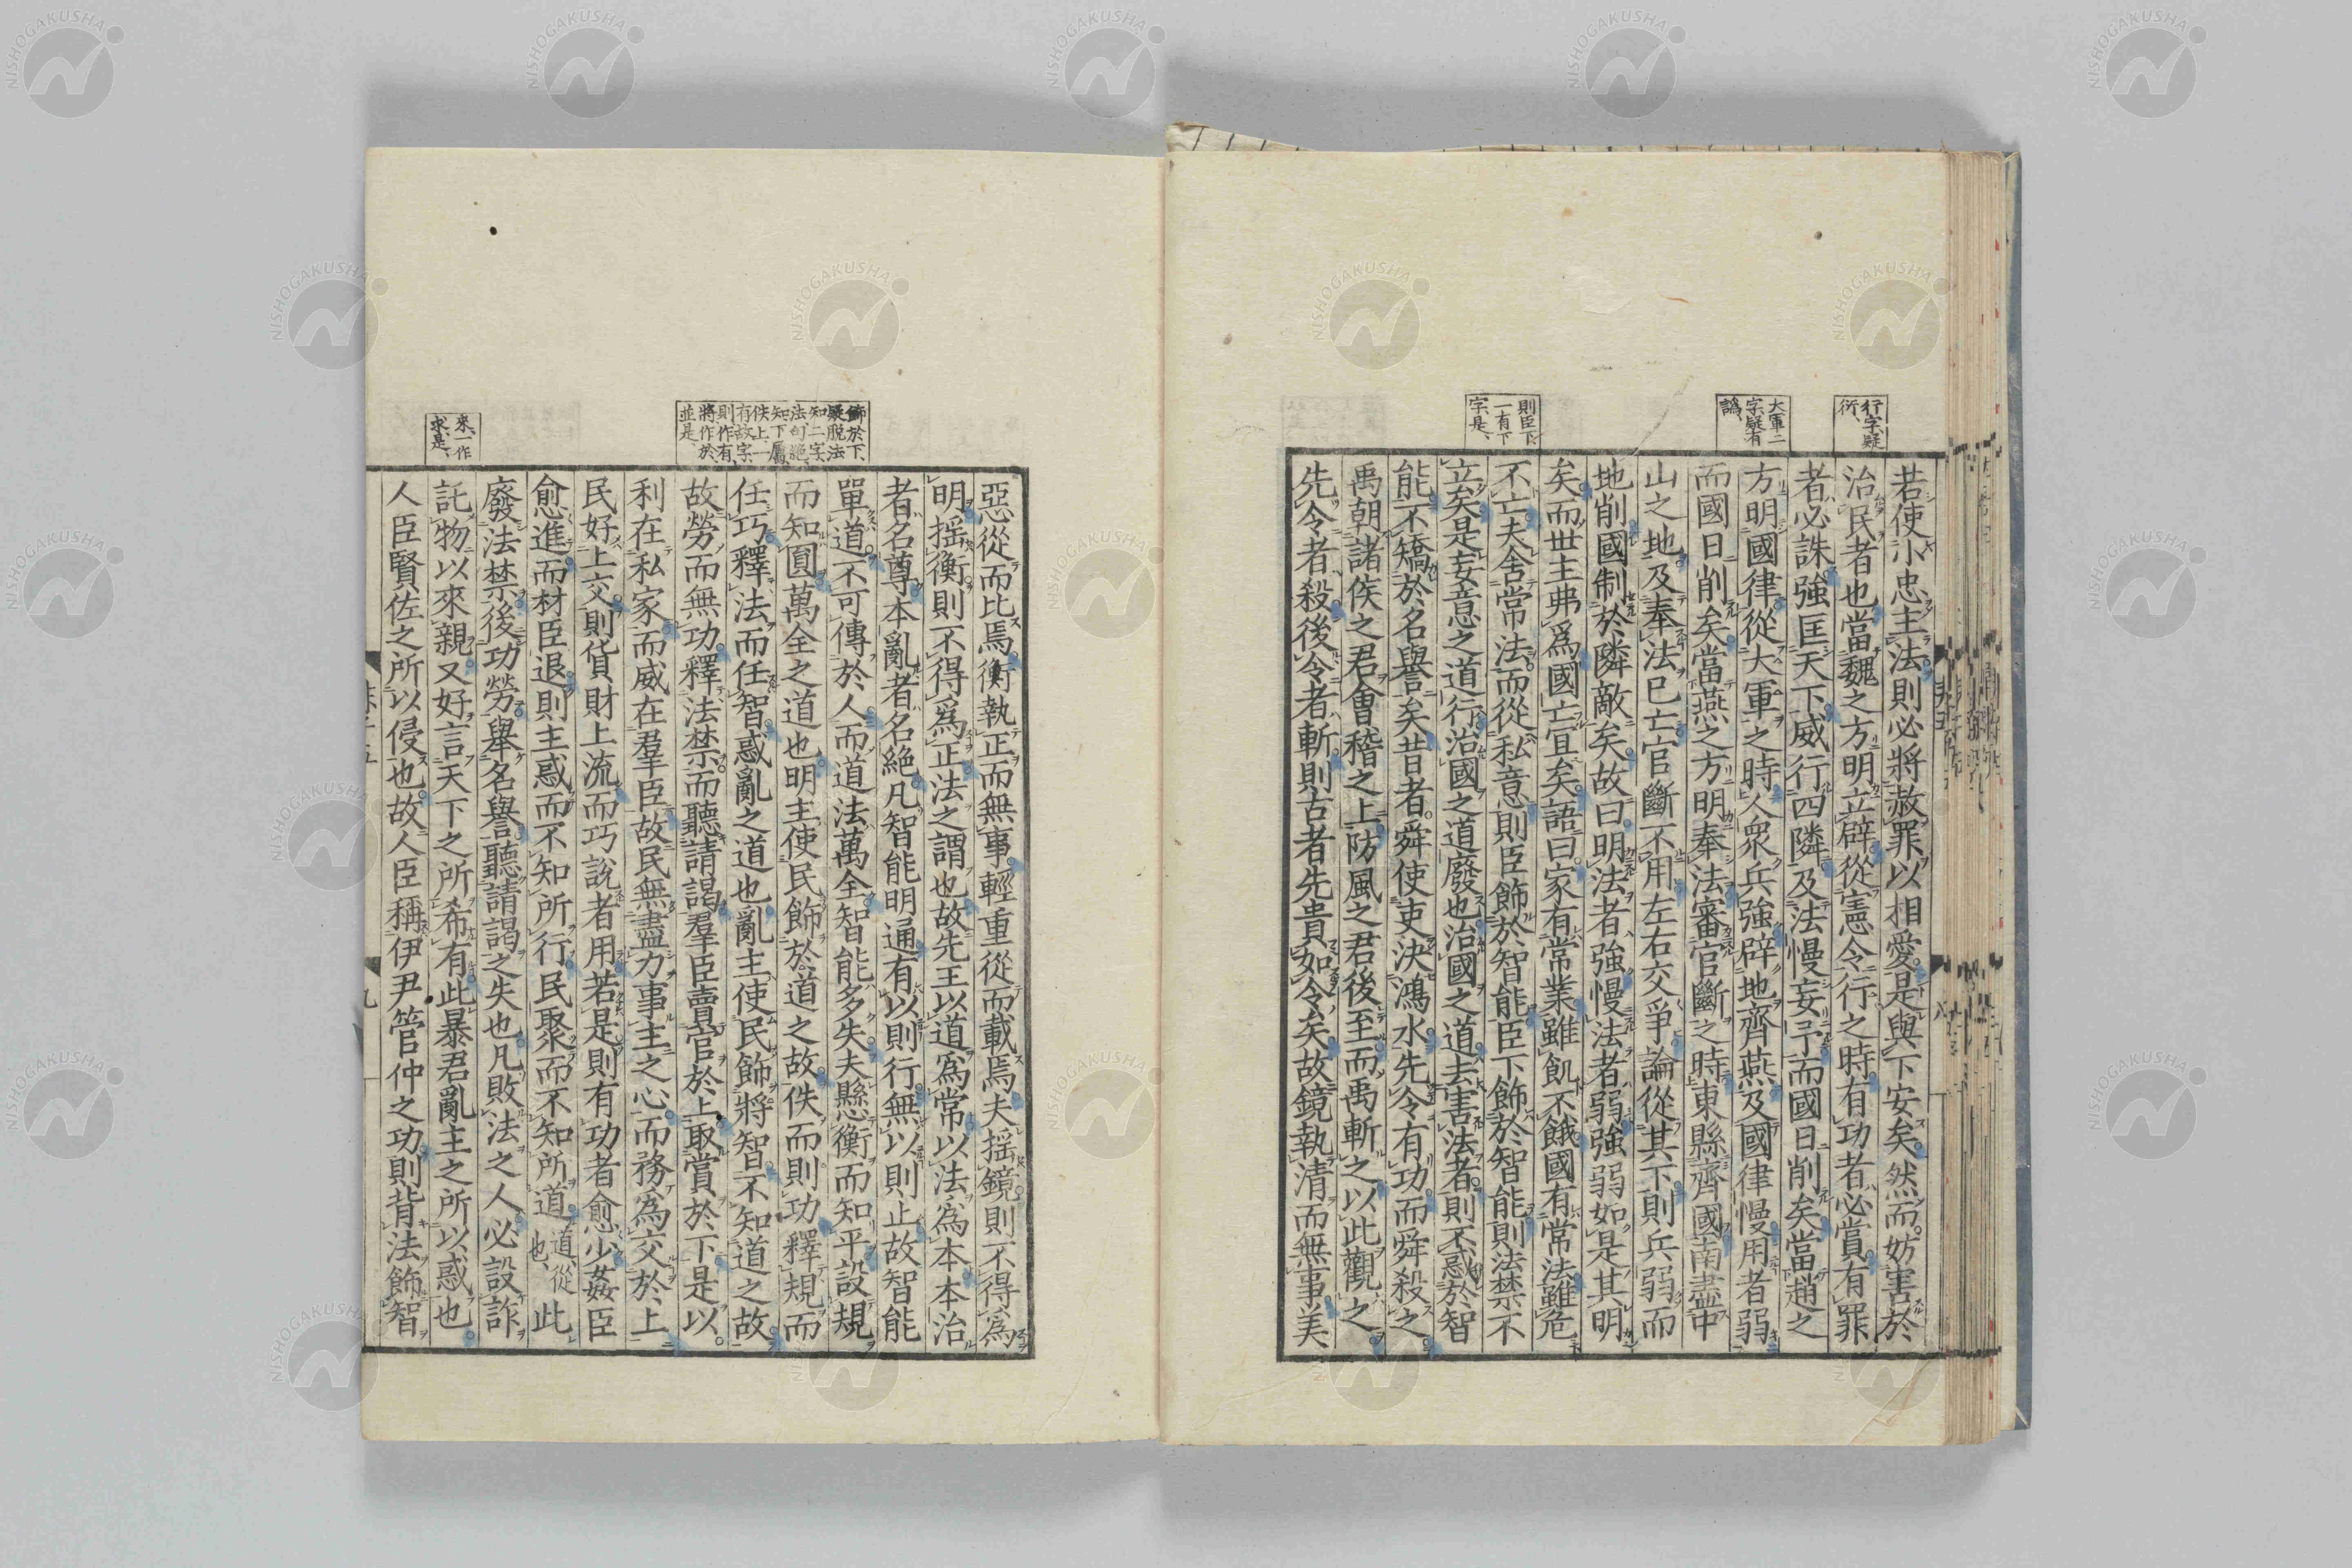 行字、疑
衍、
大軍二
字、疑有
譌、
則臣下、
一有下
字、是、
若使小忠主法則必將赦罪以相愛是與下安矣然而妨害於
治民者也當魏之方明立辟從憲令行之時有功者必賞有罪
者必誅強匡天下威行四隣及法慢妄予而國日削矣當趙之
方明國律從大軍之時人衆兵強辟地齊燕及國律慢用者弱
而國日削矣當燕之方明奉法審官斷之時東縣齊國南盡中
山之地及奉法已亡官斷不用左右交爭論從其下則兵弱而
地削國制於隣敵矣故曰明法者強慢法者弱強弱如是其明
矣而世主弗爲國亡宜矣語曰家有常業雖飢不餓國有常法雖危
不亡夫舍常法而從私意則臣飾於智能臣下飾於智能則法禁不
立矣是妄意之道行治國之道廢也治國之道去害法者則不惑於智
能不矯於名譽矣昔者舜使吏決鴻水先令有功而舜殺之
禹朝諸侯之君會稽之上防風之君後至而禹斬之以此觀之
先令者殺後令者斬則古者先貴如令矣故鏡執清而無事美
飾於下、
疑脫法
知二字、
法句絕、
知下屬、
佚上、一
有故字、
則作有、
將作於、
並是、
來、一作
求、是、
惡從而比焉衡執正而無事輕重從而載焉夫搖鏡則不得爲
明搖衡則不得爲正法之謂也故先王以道爲常以法爲本本治
者名尊本亂者名絕凡智能明通有以則行無以則止故智能
單道不可傳於人而道法萬全智能多失夫懸衡而知平設規
而知圓萬全之道也明主使民飾於道之故佚而則功釋規而
任巧釋法而任智惑亂之道也亂主使民飾將智不知道之故
故勞而無功釋法禁而聽請謁羣臣賣官於上取賞於下是以
利在私家而威在羣臣故民無盡力事主之心而務爲交於上
民好上交則貨財上流而巧說者用若是則有功者愈少姦臣
愈進而材臣退則主惑而不知所行民聚而不知所道道、從也、此
廢法禁後功勞舉名譽聽請謁之失也凡敗法之人必設詐
託物以來親又好言天下之所希有此暴君亂主之所以惑也
人臣賢佐之所以侵也故人臣稱伊尹管仲之功則背法飾智
九